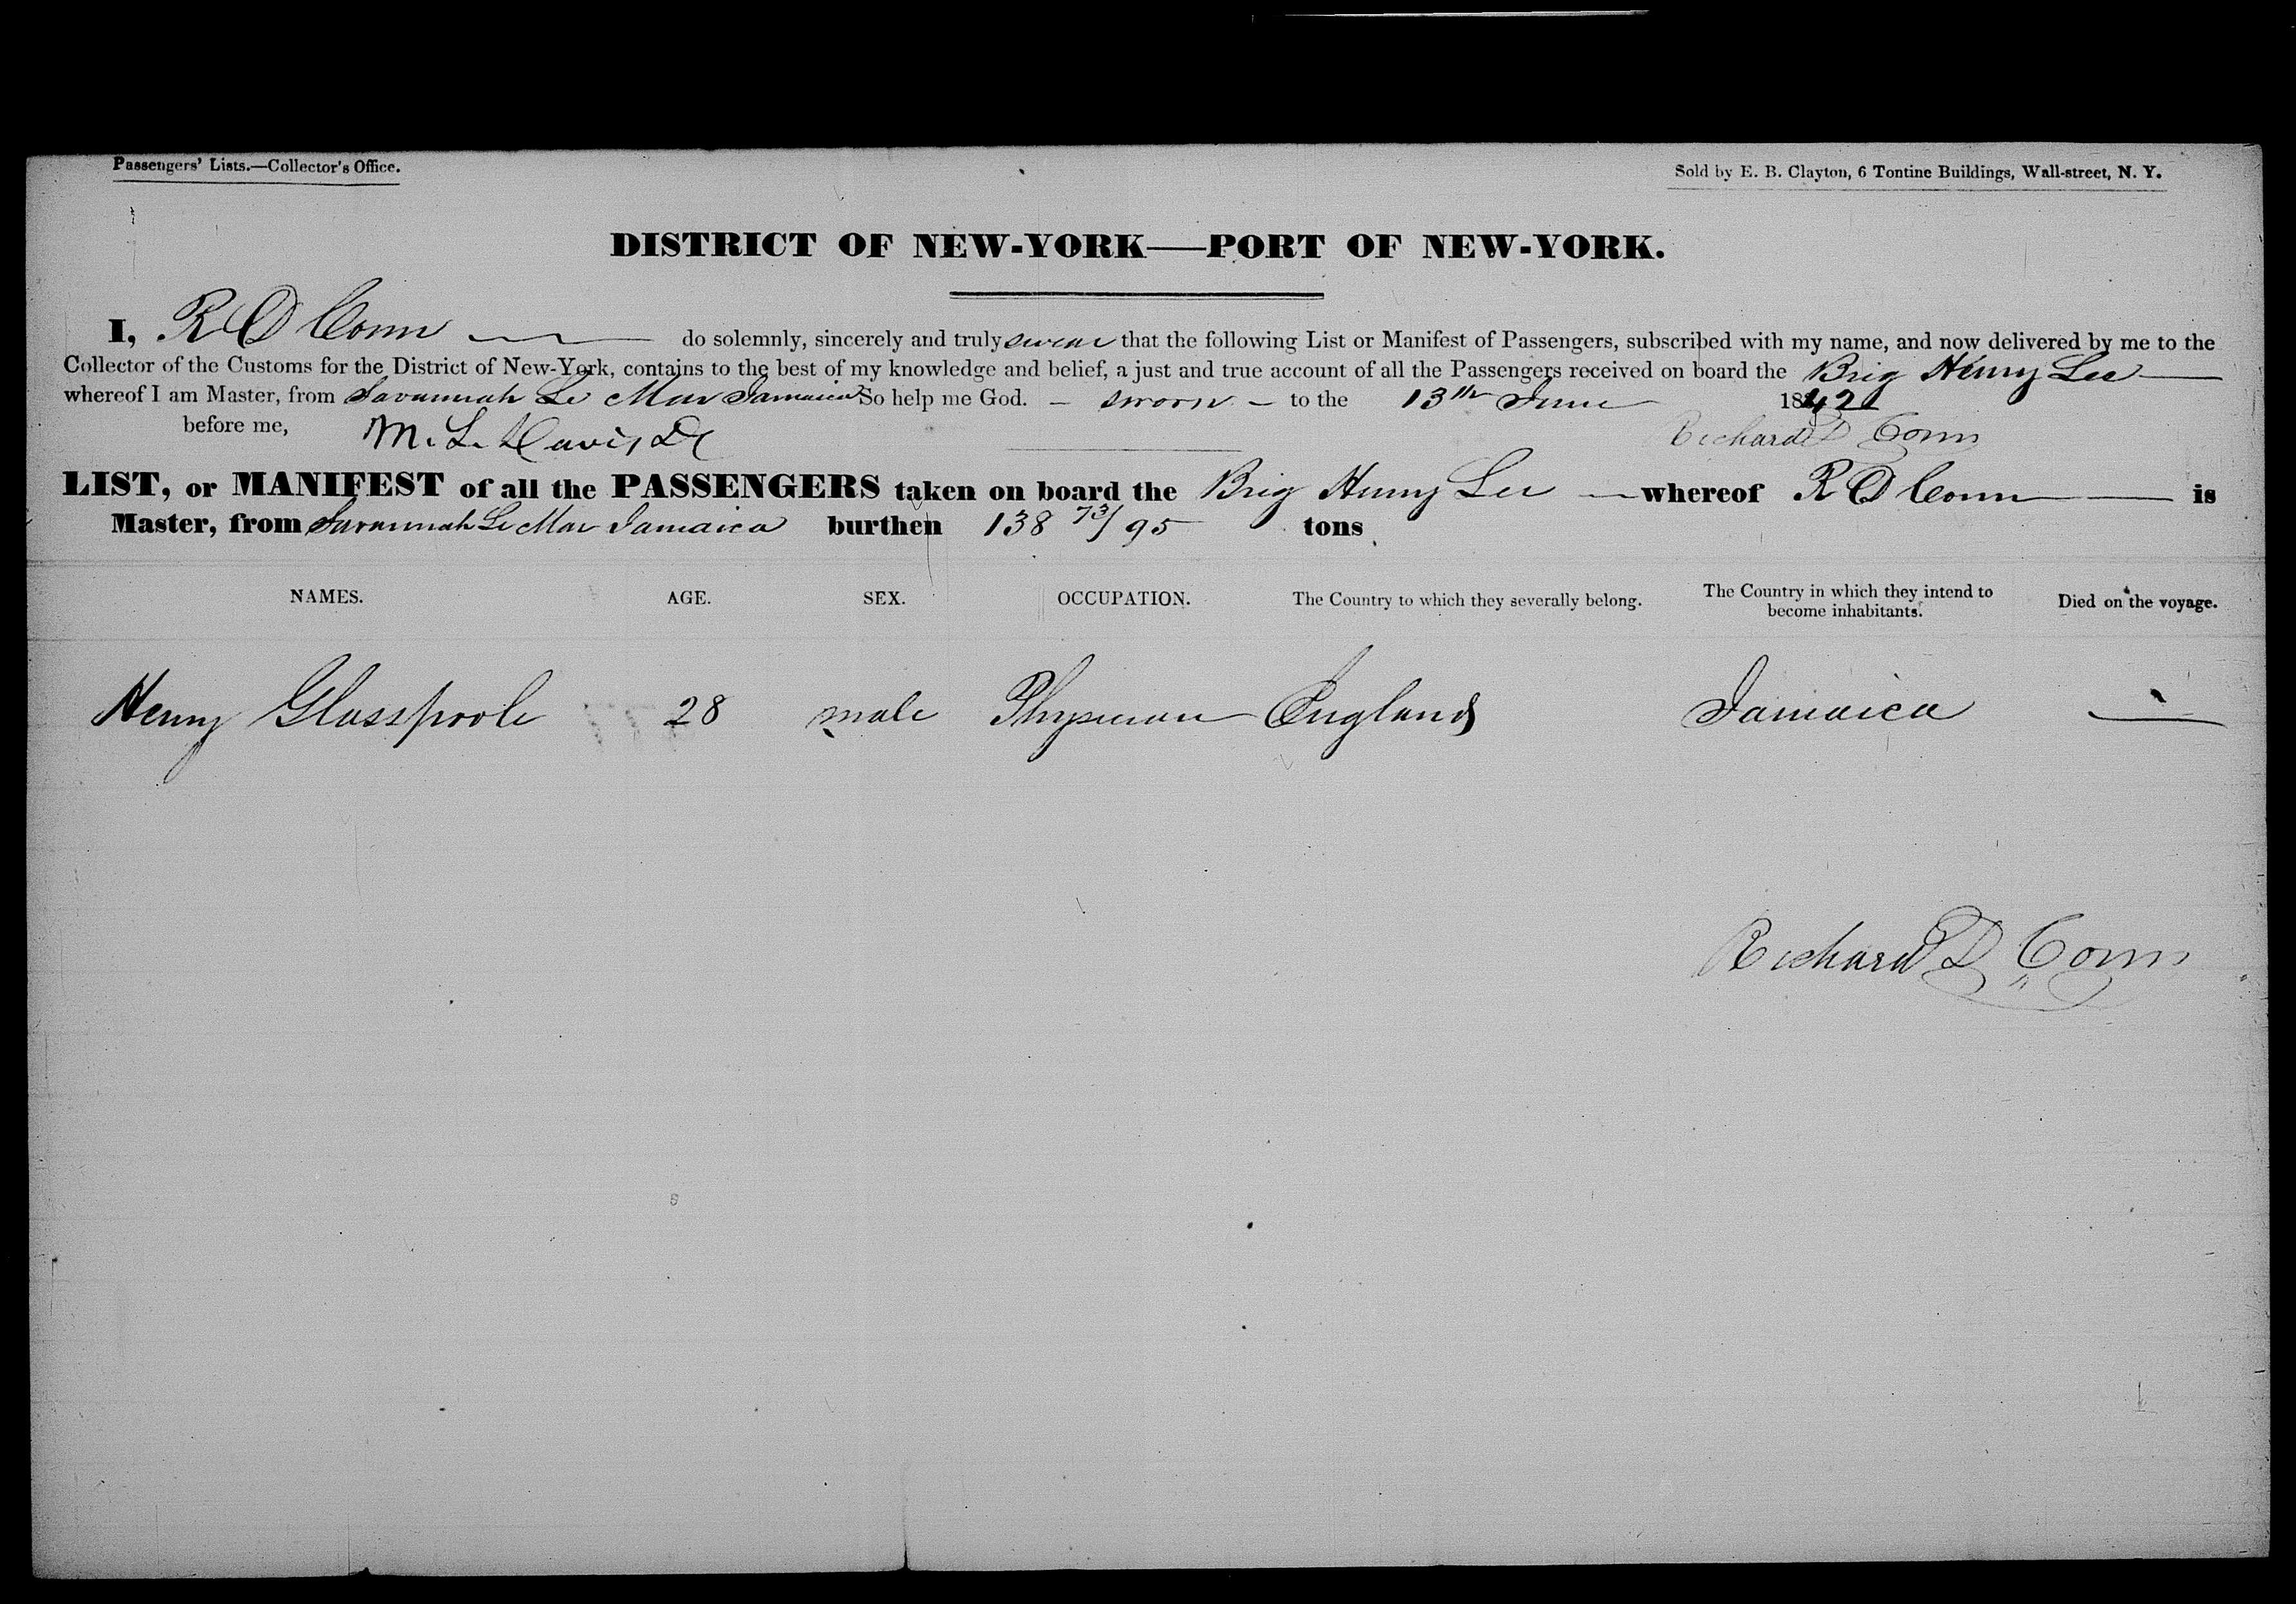 Passengers' Lists.—Collector's Office.
Sold by E. B. Clayton, 6 Tontine Buildings, Wall-street, N. Y.
DISTRICT OF NEW-YORK——PORT OF NEW-YORK.
I, R D Conn do solemnly, sincerely and truly swear that the following List or Manifest of Passengers, subscribed with my name, and now delivered by me to the
Collector of the Customs for the District of New-York, contains to the best of my knowledge and belief, a just and true account of all the Passengers received on board the Brig Henry Lee
whereof I am Master, from Savannah Le Mar Jamaica So help me God. – sworn – to the 13th June 1842
before me, M. L. Davis DC Richard D Conn
LIST, or MANIFEST of all the PASSENGERS taken on board the Brig Henry Lee whereof R D Conn is
Master, from Savannah Le Mar Jamaica burthen 138 73/95 tons
NAMES. AGE. SEX. OCCUPATION. The Country to which they severally belong. The Country in which they intend to become inhabitants. Died on the voyage.
Henry Glasspoole 28 male Physician England Jamaica —
Richard D Conn